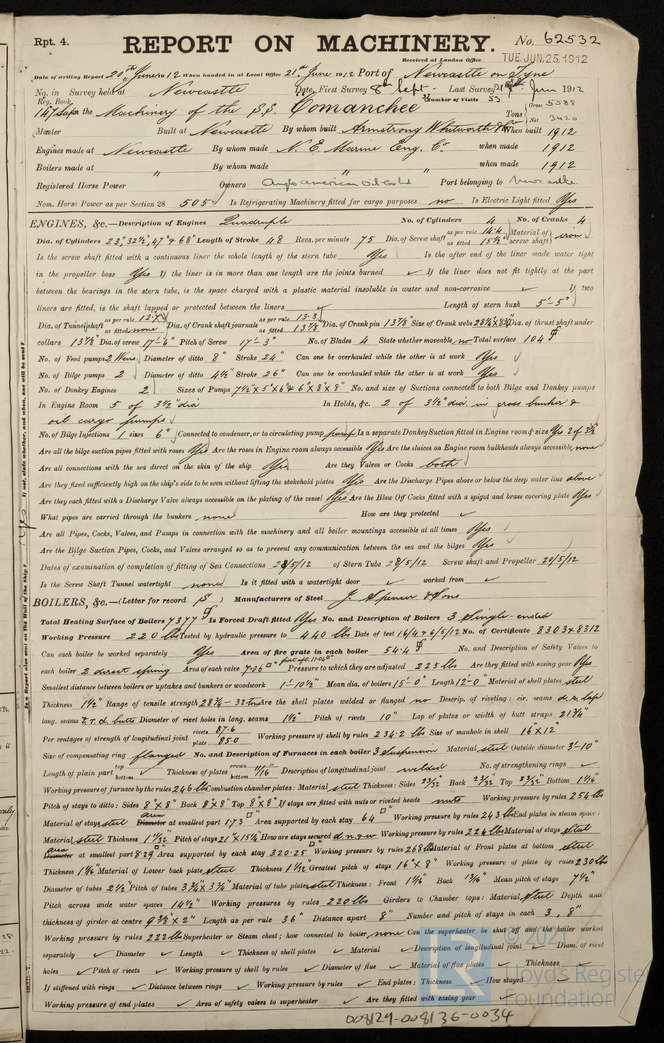 Rpt. 4. REPORT ON MACHINERY. No. 62532
Received at London Office TUE. JUN. 25. 1912
Date of writing Report 20th June 1912 When handed in at Local Office 21st June 1912 Port of Newcastle on Tyne
No. in Survey held at Newcastle Date, First Survey 8th Sept Last Survey June 1912
Reg. Book. Number of Visits 53
on the Machinery of the S.S. Comanchee Tons Gross 5588 Net 3420
Master Built at Newcastle By whom built Armstrong Whitworth & Co When built 1912
Engines made at Newcastle By whom made N. E. Marine Eng. Co when made 1912
Boilers made at " By whom made " when made 1912
Registered Horse Power Owners Anglo American Oil Co Ld Port belonging to Newcastle
Nom. Horse Power as per Section 28 505 Is Refrigerating Machinery fitted for cargo purposes no Is Electric Light fitted Yes
ENGINES, &c.—Description of Engines Quadruple No. of Cylinders 4 No. of Cranks 4
Dia. of Cylinders 23", 32½", 47" & 68" Length of Stroke 48 Revs. per minute 75 Dia. of Screw shaft as per rule 14.4 as fitted 15¼" Material of screw shaft iron
Is the screw shaft fitted with a continuous liner the whole length of the stern tube Yes Is the after end of the liner made water tight
in the propeller boss Yes If the liner is in more than one length are the joints burned ✓ If the liner does not fit tightly at the part
between the bearings in the stern tube, is the space charged with a plastic material insoluble in water and non-corrosive ✓ If two
liners are fitted, is the shaft lapped or protected between the liners ✓ Length of stern bush 5'-5"
Dia. of Tunnel shaft as per rule as fitted none Dia. of Crank shaft journals as per rule 13.3 as fitted 13⅞ Dia. of Crank pin 13⅞" Size of Crank webs Dia. of thrust shaft under
collars 13⅞" Dia. of screw 17'-6" Pitch of Screw 17'-3" No. of Blades 4 State whether moveable no Total surface 104
No. of Feed pumps 2 Weirs Diameter of ditto 8" Stroke 24" Can one be overhauled while the other is at work Yes
No. of Bilge pumps 2 Diameter of ditto 4¼" Stroke 26" Can one be overhauled while the other is at work Yes
No. of Donkey Engines 2 Sizes of Pumps 7½ x 5 x 6 & 6 x 8 x 8" No. and size of Suctions connected to both Bilge and Donkey pumps
In Engine Room 5 of 3½" dia In Holds, &c. 2 of 3½" dia in cross bunker &
oil cargo pumps
No. of Bilge Injections 1 sizes 6" Connected to condenser, or to circulating pump pump Is a separate Donkey Suction fitted in Engine room & size Yes 2 of 3½
Are all the bilge suction pipes fitted with roses Yes Are the roses in Engine room always accessible Yes Are the sluices on Engine room bulkheads always accessible none
Are all connections with the sea direct on the skin of the ship Yes Are they Valves or Cocks both
Are they fixed sufficiently high on the ship's side to be seen without lifting the stokehold plates Yes Are the Discharge Pipes above or below the deep water line above
Are they each fitted with a Discharge Valve always accessible on the plating of the vessel Yes Are the Blow Off Cocks fitted with a spigot and brass covering plate Yes
What pipes are carried through the bunkers none How are they protected ✓
Are all Pipes, Cocks, Valves, and Pumps in connection with the machinery and all boiler mountings accessible at all times Yes
Are the Bilge Suction Pipes, Cocks, and Valves arranged so as to prevent any communication between the sea and the bilges Yes
Dates of examination of completion of fitting of Sea Connections 28/5/12 of Stern Tube 28/5/12 Screw shaft and Propeller 29/5/12
Is the Screw Shaft Tunnel watertight none Is it fitted with a watertight door ✓ worked from ✓
BOILERS, &c.—(Letter for record S) Manufacturers of Steel J. Spencer & Sons
Total Heating Surface of Boilers 7377 Is Forced Draft fitted Yes No. and Description of Boilers 3 Single-ended
Working Pressure 220 lbs Tested by hydraulic pressure to 440 lbs Date of test 16/4 & 6/5/12 No. of Certificate 8303 & 8312
Can each boiler be worked separately Yes Area of fire grate in each boiler 54.4 No. and Description of Safety Valves to
each boiler 2 direct spring Area of each valve 7.06 Pressure to which they are adjusted 225 lbs Are they fitted with easing gear Yes
Smallest distance between boilers or uptakes and bunkers or woodwork 1'-10½" Mean dia. of boilers 15'-0" Length 12'-0" Material of shell plates steel
Thickness 1½" Range of tensile strength 28¾-32 tons Are the shell plates welded or flanged no Descrip. of riveting: cir. seams d.r. lap
long. seams t.r.d. butts Diameter of rivet holes in long. seams 1½" Pitch of rivets 10" Lap of plates or width of butt straps 21¾"
Per centages of strength of longitudinal joint rivets 87.6 plate 85.0 Working pressure of shell by rules 236.2 lbs Size of manhole in shell 16" x 12"
Size of compensating ring flanged No. and Description of Furnaces in each boiler 3 suspension Material steel Outside diameter 3'-10"
Length of plain part top bottom ✓ Thickness of plates crown bottom 11/16 Description of longitudinal joint welded No. of strengthening rings ✓
Working pressure of furnace by the rules 246 lbs Combustion chamber plates: Material steel Thickness: Sides 23/32 Back 23/32 Top 23/32 Bottom
Pitch of stays to ditto: Sides 8" x 8" Back 8" x 8" Top 8" x 8" If stays are fitted with nuts or riveted heads nuts Working pressure by rules 254 lbs
Material of stays steel area at smallest part 1.73 Area supported by each stay 64 Working pressure by rules 243 lbs End plates in steam space:
Material steel Thickness Pitch of stays 21" x 15¼" How are stays secured d.n. & w Working pressure by rules 224 lbs Material of stays steel
area at smallest part 8.29 Area supported by each stay 320.25 Working pressure by rules 268 lbs Material of Front plates at bottom steel
Thickness Material of Lower back plate steel Thickness Greatest pitch of stays 16" x 8" Working pressure of plate by rules 230 lbs
Diameter of tubes 2½" Pitch of tubes 3¾ x 3⅞" Material of tube plates steel Thickness: Front Back 13/16 Mean pitch of stays 7½"
Pitch across wide water spaces 14½" Working pressures by rules 220 lbs Girders to Chamber tops: Material steel Depth and
thickness of girder at centre 9⅜" x 2" Length as per rule 36" Distance apart 8" Number and pitch of stays in each 3, 8"
Working pressure by rules 222 lbs Superheater or Steam chest; how connected to boiler none Can the superheater be shut off and the boiler worked
separately ✓ Diameter ✓ Length ✓ Thickness of shell plates ✓ Material ✓ Description of longitudinal joint ✓ Diam. of rivet
holes ✓ Pitch of rivets ✓ Working pressure of shell by rules ✓ Diameter of flue ✓ Material of flue plates ✓ Thickness ✓
If stiffened with rings ✓ Distance between rings ✓ Working pressure by rules ✓ End plates: Thickness ✓ How stayed ✓
Working pressure of end plates ✓ Area of safety valves to superheater ✓ Are they fitted with easing gear ✓
Lloyd's Register
Foundation
008129-008136-0034